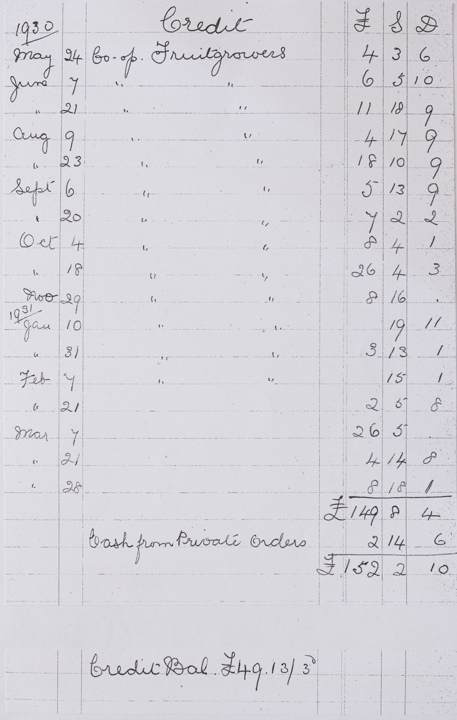 1930 Credit £ S D
May 24 Co-op. Fruitgrowers 4 3 6
June 7 " " 6 5 10
" 21 " " 11 18 9
Aug 9 " 4 17 9
" 23 " " 18 10 9
Sept 6 " " 5 13 9
" 20 " " 7 2 2
Oct 4 " " 8 4 1
" 18 " " 26 4 3
Nov 29 " " 8 16 .
1931
Jan 10 " " 19 11
" 31 " " 3 13 1
Feb 7 " " 15 1
" 21 2 5 8
Mar 7 26 5
" 21 4 14 8
" 28 8 18 1
£149 8 4
Cash from Private Orders 2 14 6
£152 2 10
Credit Bal. £49.13/3ᵈ